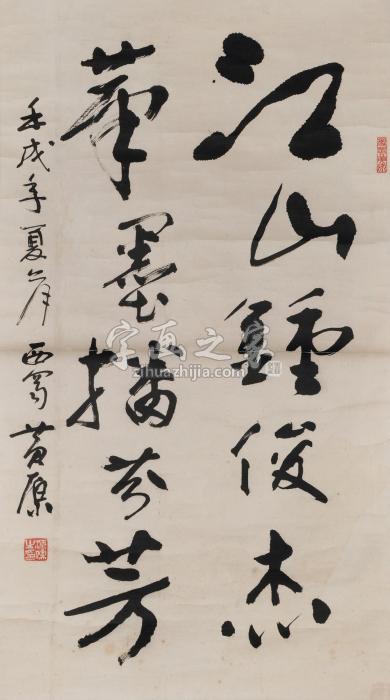 江山鍾俊杰
筆墨播芬芳
壬戌年夏六月 西蜀 黄原
字画之家
zihuazhijia.com